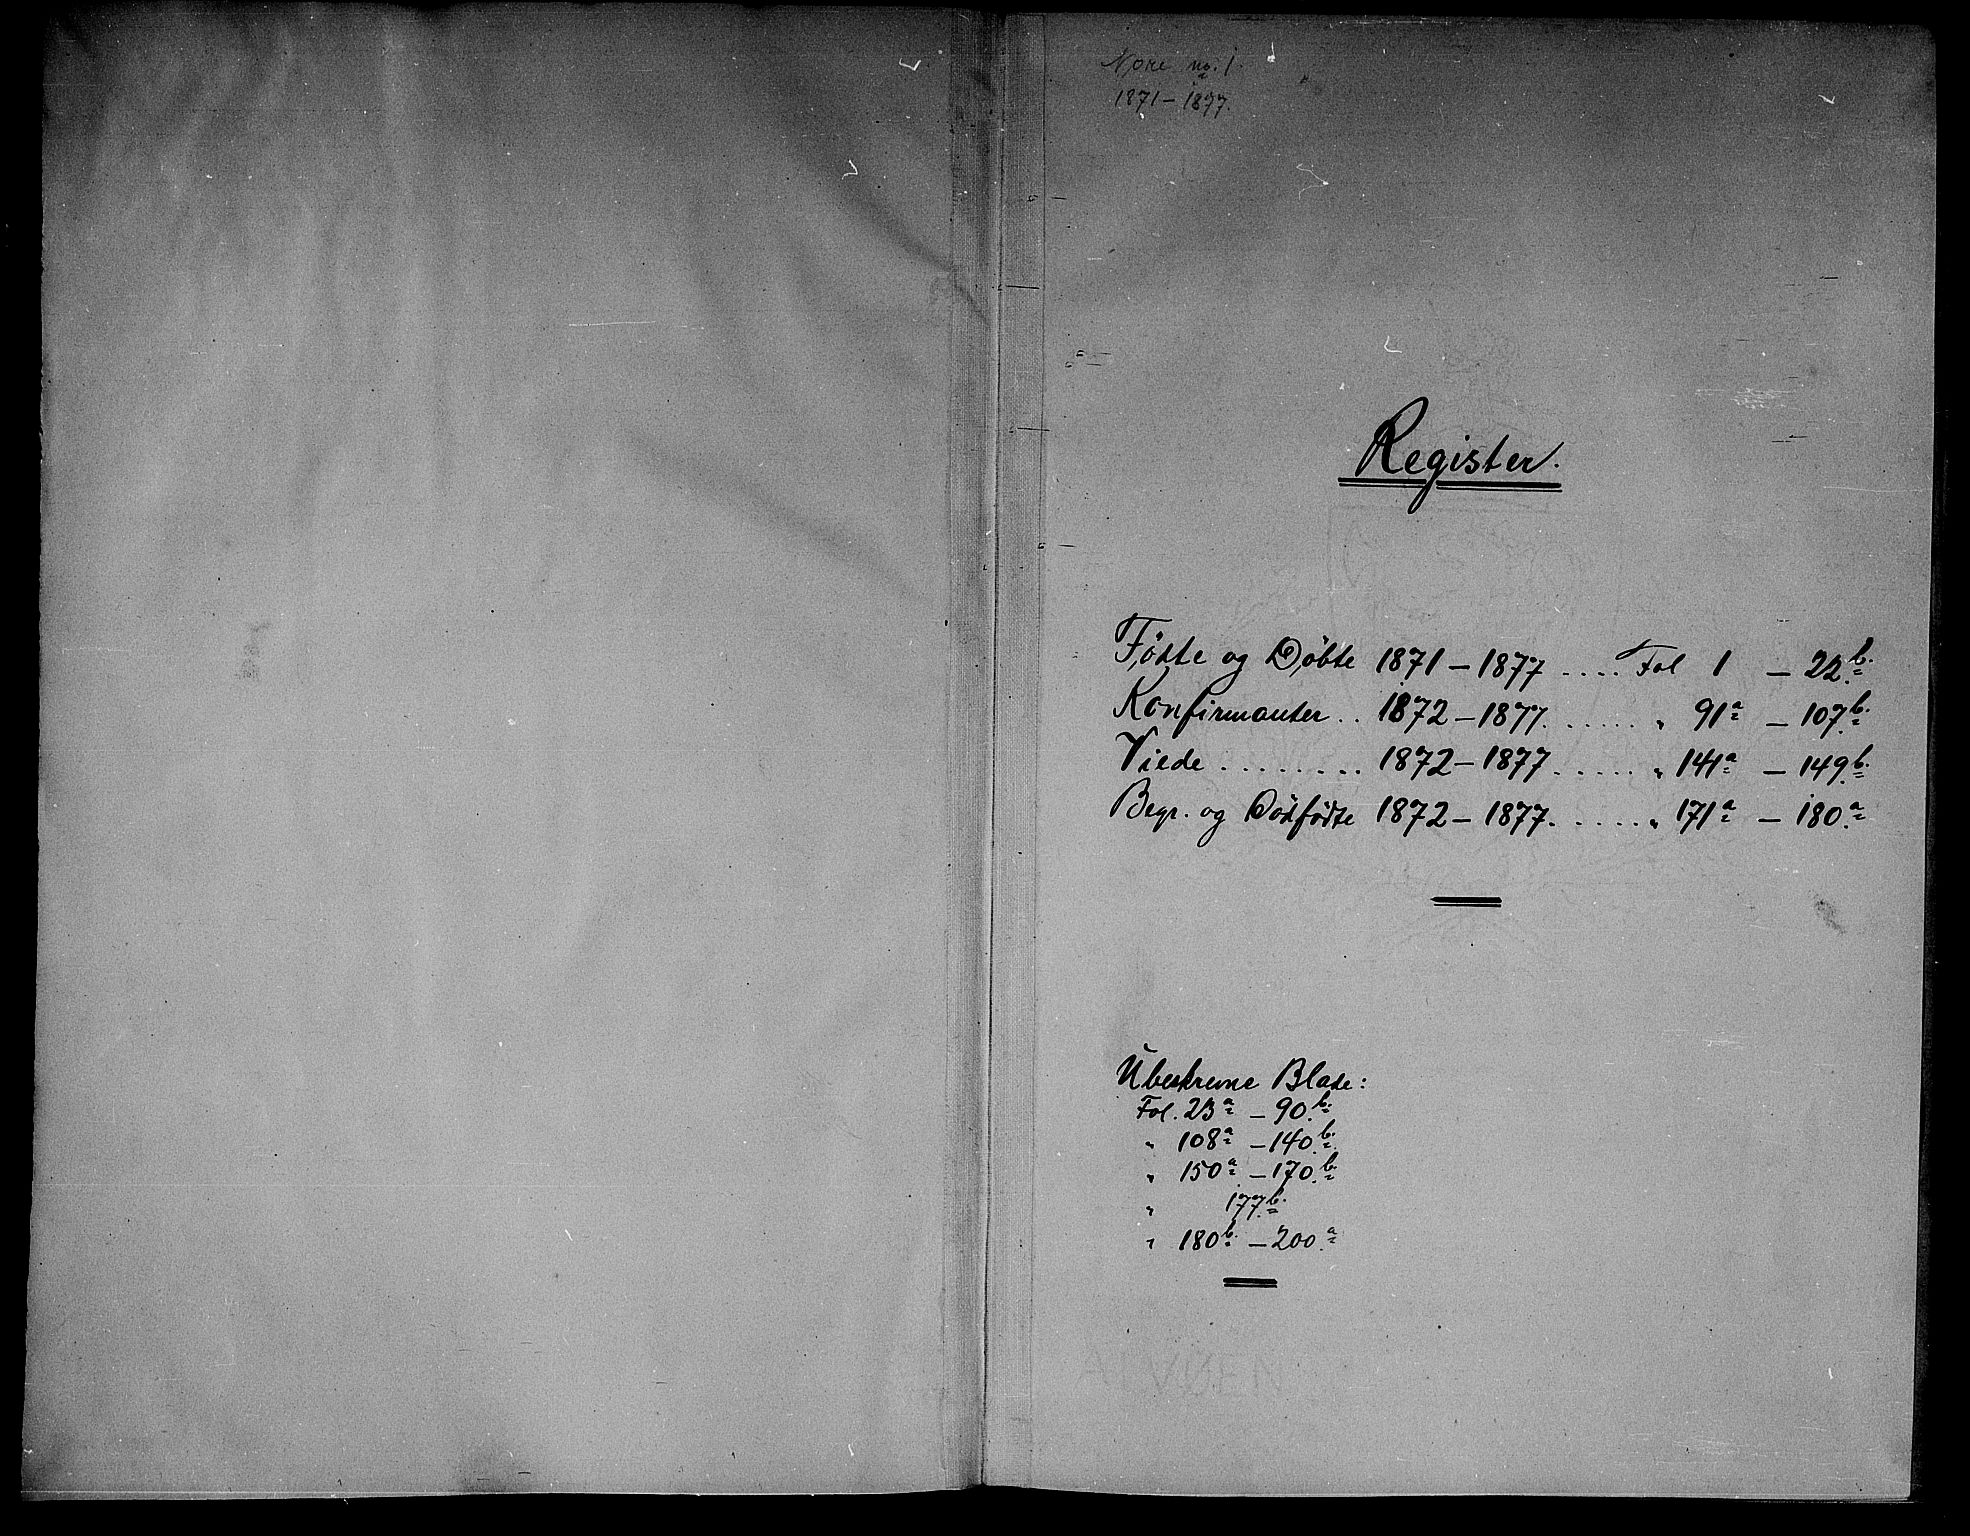 Nore no. 1.
1871 – 1877.
Register.
Fødte og Døbte 1871 – 1877 .... Fol 1 – 22b.
Konfirmanter .. 1872 – 1877 ...... " 91a – 107b.
Viede ........ 1872 – 1877 ..... " 141a – 149b.
Begr. og Dødfødte 1872 – 1877. ..... " 171a – 180a
Ubeskrevne Blade:
Fol. 23a – 90b.
" 108a – 140b.
" 150a – 170b.
" 177b.
" 180b. – 200a
ALVØEN